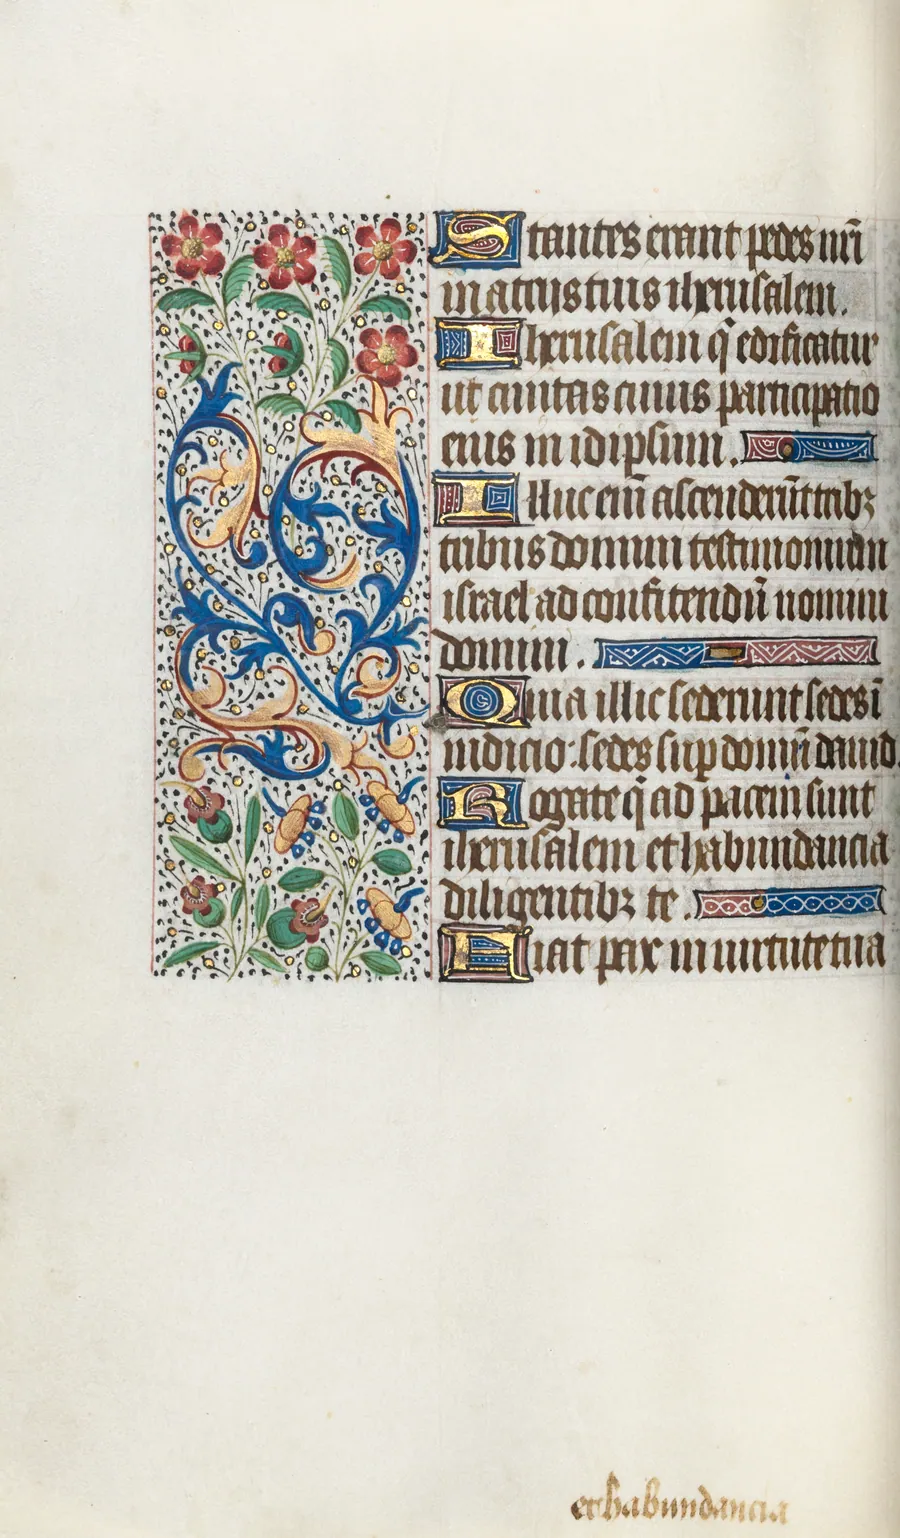 Stantes erant pedes nr̄i
in atriis tuis iherusalem.
Iherusalem q̄ edificatur
ut ciuitas cuius participatio
eius in idipsum.
Illuc eni̅ ascenderūt tribꝫ
tribus domini testimonium
israel ad confitendū nomini
domini.
Quia illic sederunt sedes ī
iudicio: sedes sup domū dauid.
Rogate q̄ ad pacem sunt
iherusalem et habundancia
diligentibꝫ te.
Fiat pax in uirtute tua
et habundancia